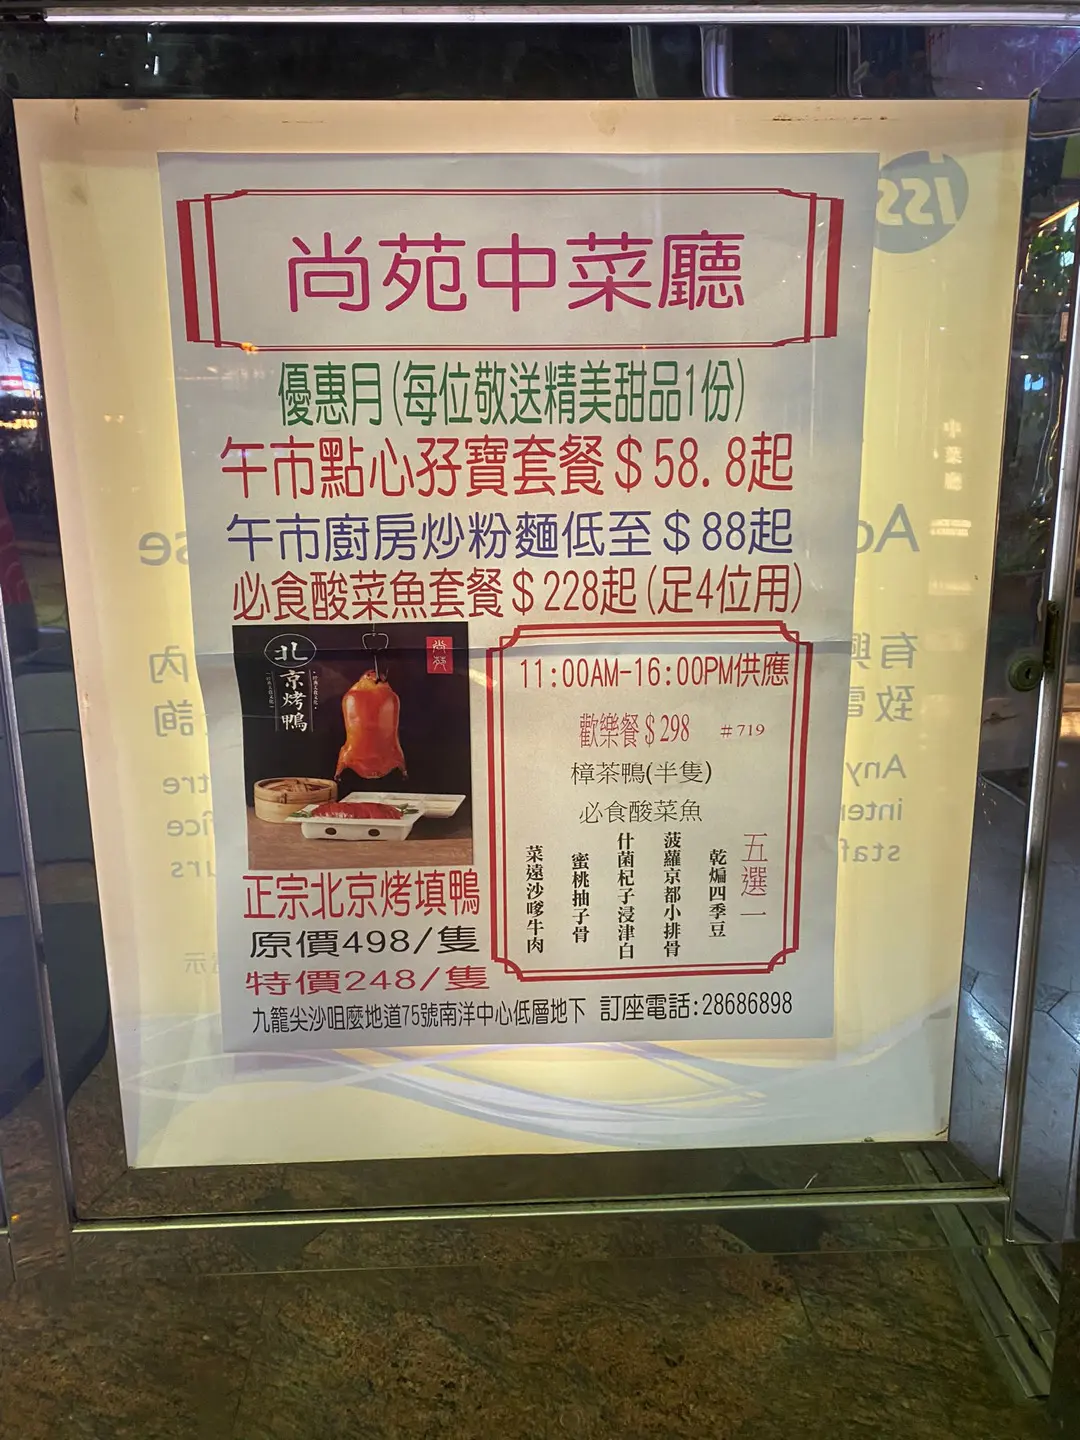 尚苑中菜廳
優惠月(每位敬送精美甜品1份)
午市點心孖寶套餐$58.8起
午市廚房炒粉麵低至$88起
必食酸菜魚套餐$228起(足4位用)
北京烤鴨
尚苑
正宗北京烤填鴨
原價498/隻
特價248/隻
11:00AM-16:00PM供應
歡樂餐$298 #719
樟茶鴨(半隻)
必食酸菜魚
五選一
乾煸四季豆
菠蘿京都小排骨
什菌杞子浸津白
蜜桃抽子骨
菜遠沙嗲牛肉
九籠尖沙咀麼地道75號南洋中心低層地下 訂座電話:28686898